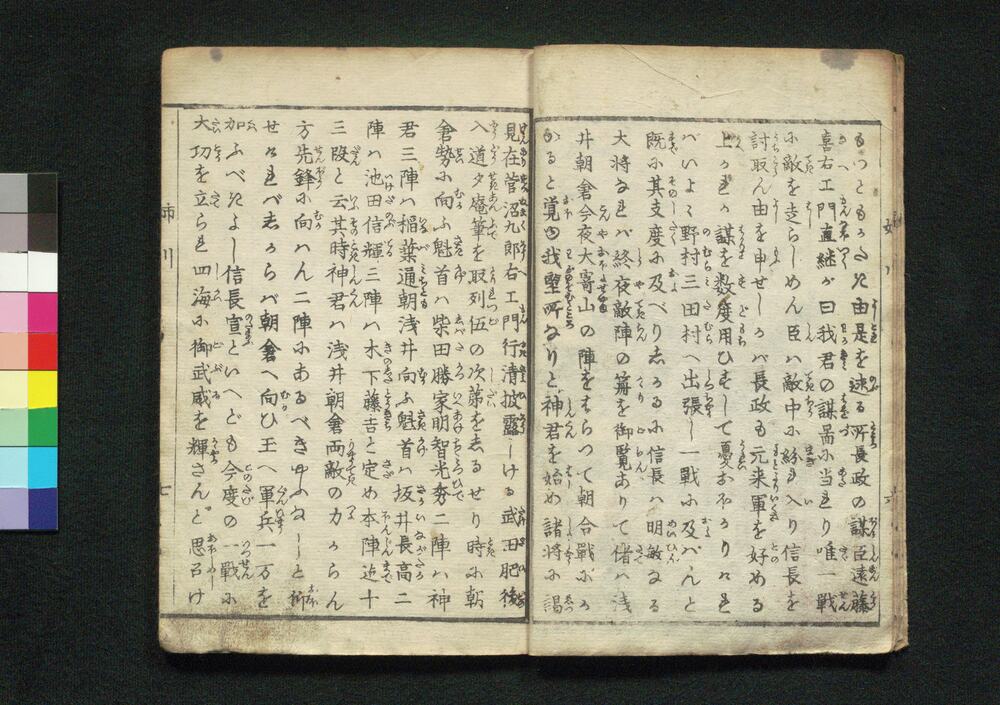 もつともらしき由是を述る所長政の謀臣遠藤
喜右エ門直継が曰我君の謀畧に当れり唯一戦
に敵を走らしめん臣は敵中に紛れ入り信長を
討取ん由を申せしかば長政も元来軍を好める
上かれが謀を数度用ひずして憂おほかりけれ
ばいよ〳〵野村三田村へ出張し一戦に及ばんと
既に其支度に及べりしかるに信長は明敏なる
大将なれば終夜敵陣の篝を御覧ありて偖は浅
井朝倉今夜大寄山の陣をはらつて朝合戦にか
かると覚ゆ我望所なりと神君を始め諸将に謁
見在菅沼九郎右エ門行清披露しける武田肥後
入道夕庵筆を取列伍の次第をしるせり時に朝
倉勢に向ふ魁首は柴田勝家明智光秀二陣は神
君三陣は稲葉通朝浅井向ふ魁首は坂井長高二
陣は池田信輝三陣は木下藤吉と定め本陣迄十
三段と云其時神君は浅井朝倉両敵の力つよからん
方先鋒に向はん二陣にあるべき事ふなしと仰
せければしからば朝倉へ向ひ玉へ軍兵一万を
加ふべきよし信長宣といへども今度の一戦に
大功を立られ四海に御武威を輝さんと思召け
市川
七